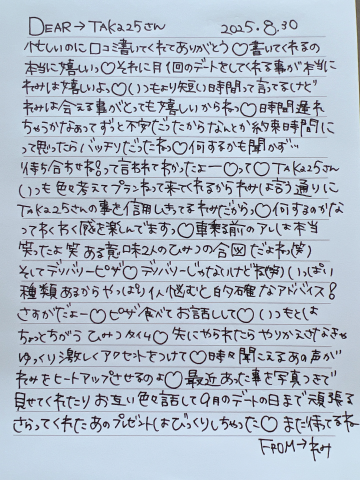 DEAR→TAKA25さん 2025.8.30
忙しいのに口コミ書いてくれてありがとう♡書いてくれるの
本当に嬉しいっ♡それに月1回のデートをしてくれる事が本当に
れみは嬉しいよ。♡(いつもより短い時間って言ってるけど
れみは会える事がとっても嬉しいからねっ♡日時間遅れ
ちゃうかなぁってずっと不安だったからなんとか約束時間に
って思ったらバッチリだったねっ♡何するかも聞かず…
待ち合わせね!って言われてわかったよー♡って♡TAKA25さん
いつも色々考えてプランねって来てくれるかられみは言う通りに
TAKA25さんの事を信用しきってるれみだから。♡何するのかな
ってわくわく感を楽しんでますっ♡車乗る前のアレは本当
笑ったよ笑 ある意味2人のひみつの合図だよねっ(笑)
そしてデリバリーピザ♡デリバリーじゃないけど(笑)いっぱい
種類あるからやっぱり1人悩むと的確なアドバイス!
さすがだよー♡ピザ食べてお話しして♡いつもとは
ちょっとちがうひみつタイム♡先にやられたらやりかえさなきゃ
ゆっくり激しくアクセントをつけて♡時々聞こえるあの声が
れみをヒートアップさせるのよ♡最近あった事を写真つきで
見せてくれたりお互い色々話して9月のデートの日まで頑張る
さらってくれたあのプレゼントはびっくりしちゃった♡また待ってるね
FROM→れみ